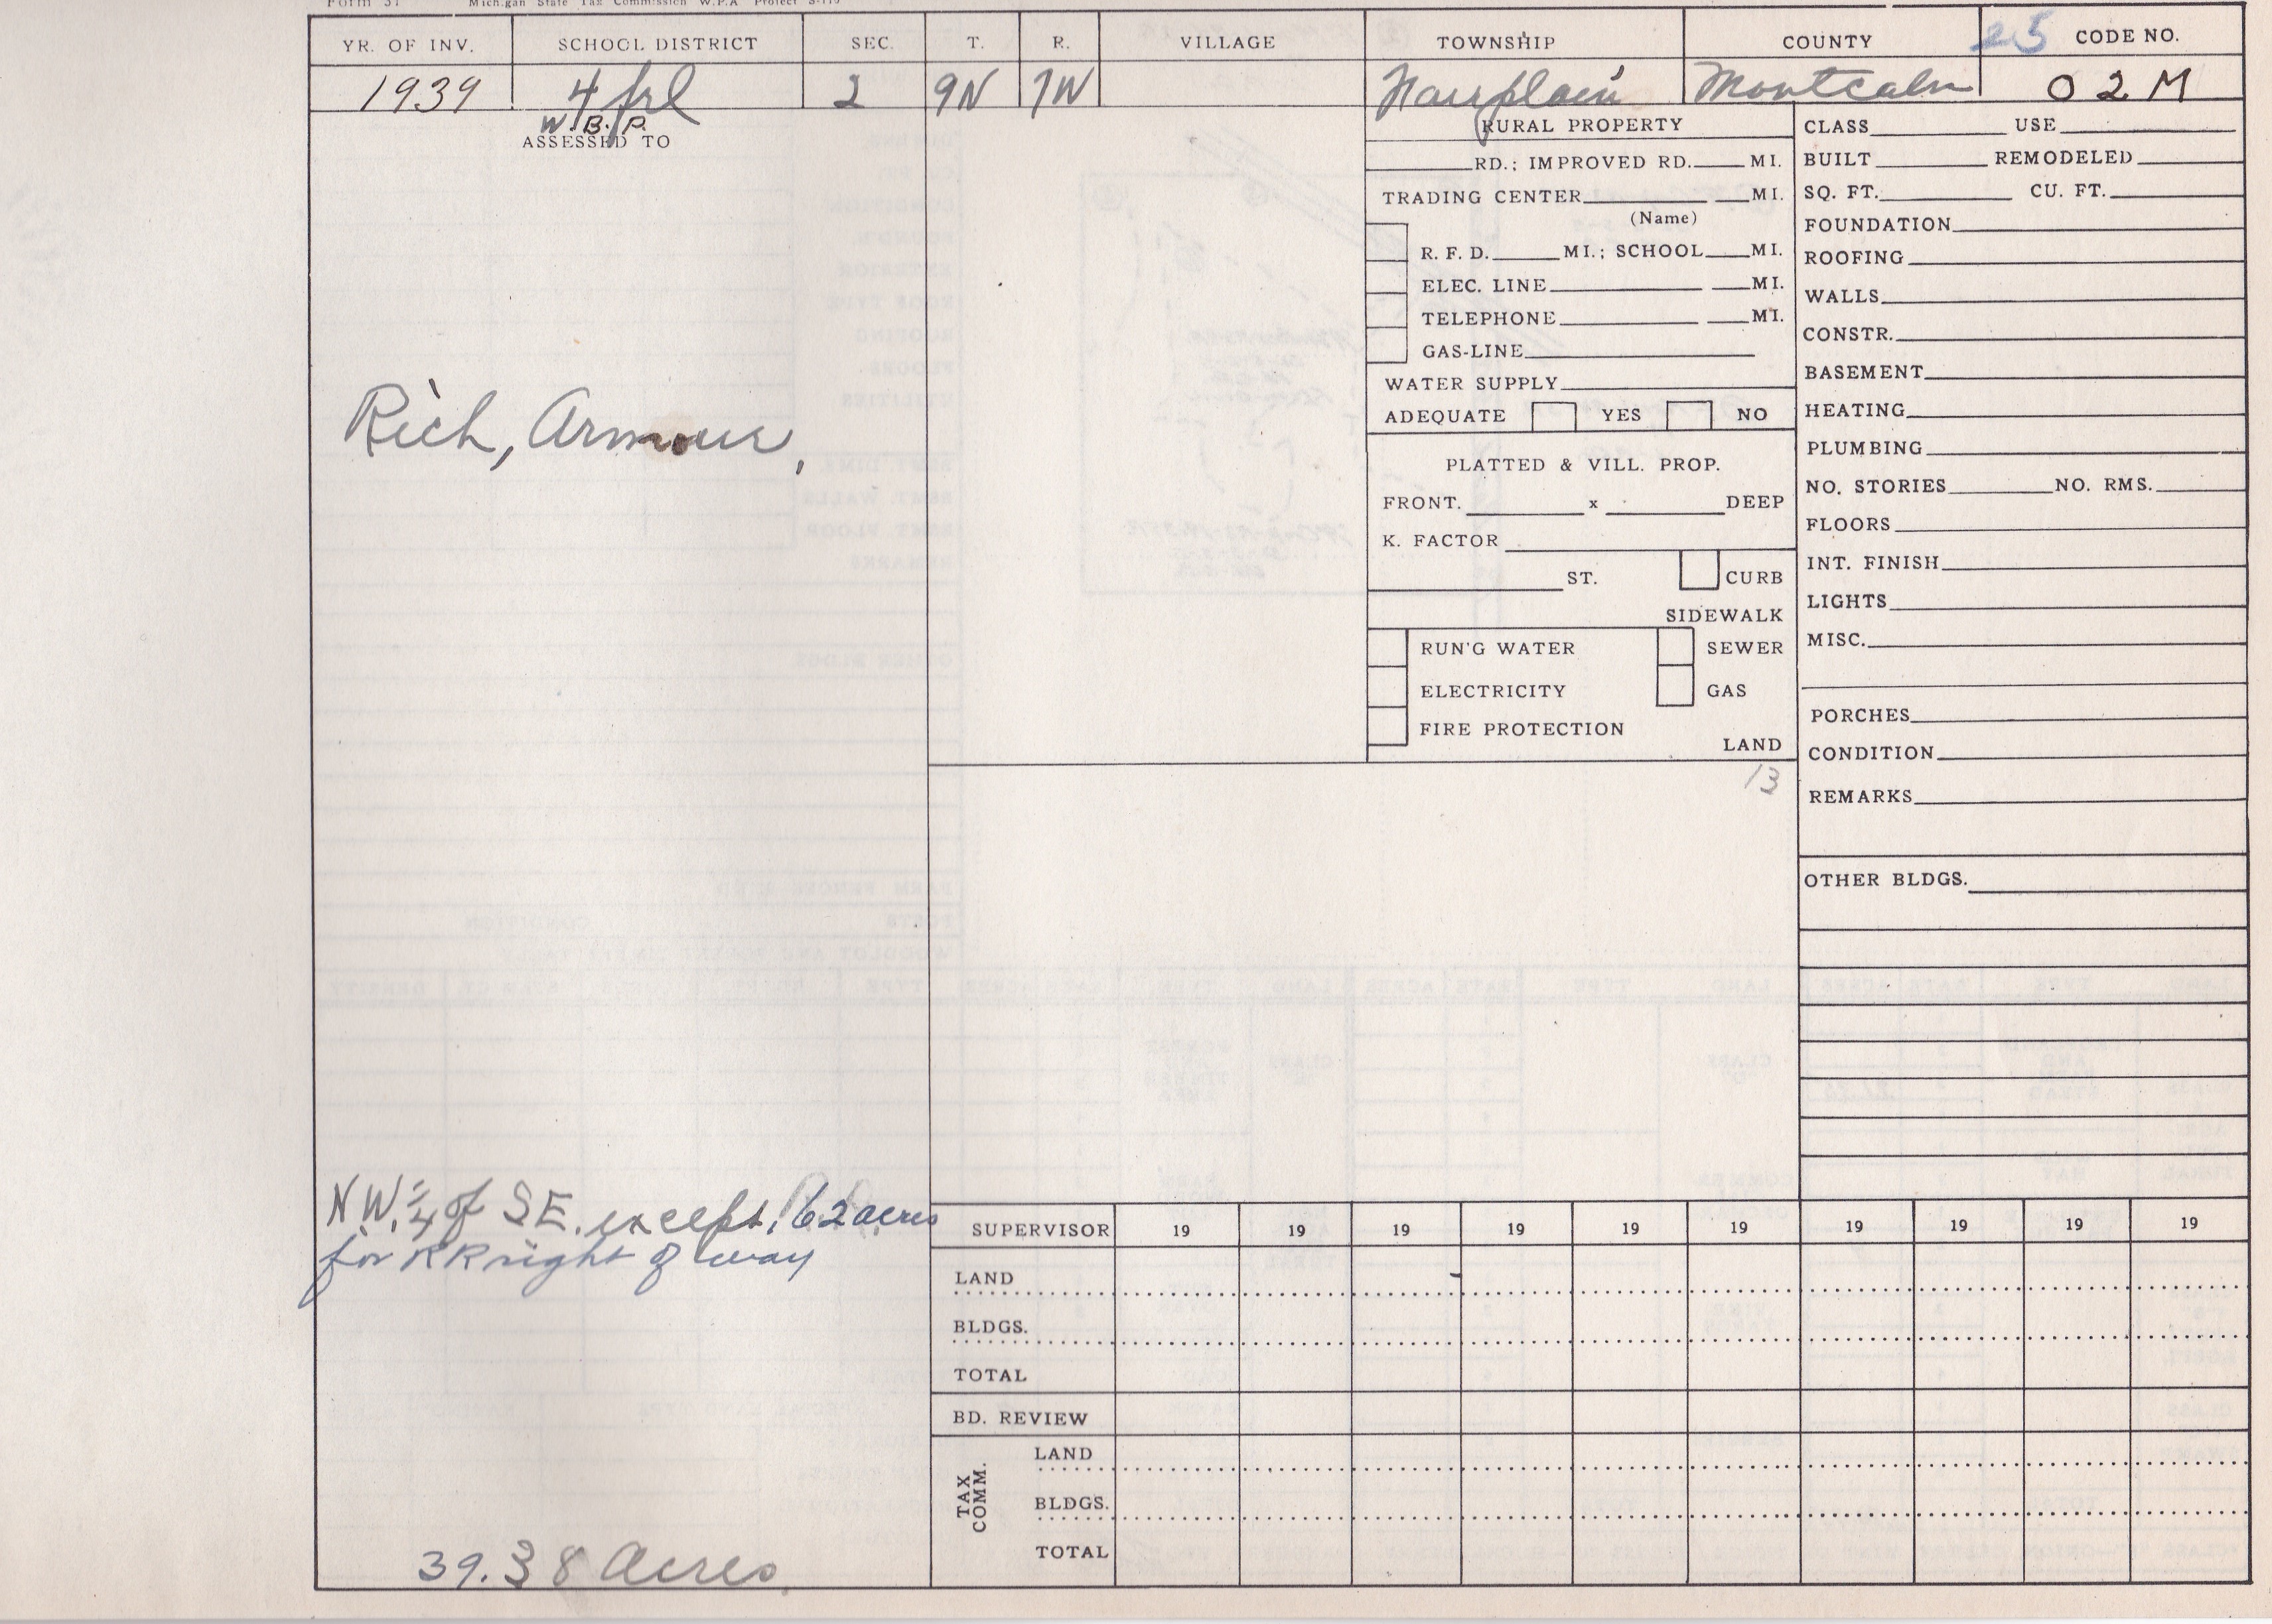 Form 31 Michigan State Tax Commission W.P.A Project S-119
YR. OF INV. SCHOOL DISTRICT SEC. T. R. VILLAGE TOWNSHIP COUNTY 25 CODE NO.
1939 4 frl 2 9N 7W Fairplain Montcalm 02M
W.B.P.
ASSESSED TO
Rich, Armour,
NW. 1/4 of SE. except .62 acres
for RR right of way
39.38 acres
RURAL PROPERTY
RD.; IMPROVED RD. MI.
TRADING CENTER MI.
(Name)
R. F. D. MI.; SCHOOL MI.
ELEC. LINE MI.
TELEPHONE MI.
GAS-LINE
WATER SUPPLY
ADEQUATE YES NO
PLATTED & VILL. PROP.
FRONT. x DEEP
K. FACTOR
ST. CURB
SIDEWALK
RUN'G WATER SEWER
ELECTRICITY GAS
FIRE PROTECTION
LAND
13
CLASS USE
BUILT REMODELED
SQ. FT. CU. FT.
FOUNDATION
ROOFING
WALLS
CONSTR.
BASEMENT
HEATING
PLUMBING
NO. STORIES NO. RMS.
FLOORS
INT. FINISH
LIGHTS
MISC.
PORCHES
CONDITION
REMARKS
OTHER BLDGS.
SUPERVISOR 19 19 19 19 19 19 19 19 19 19
LAND
BLDGS.
TOTAL
BD. REVIEW
TAX COMM.
LAND
BLDGS.
TOTAL